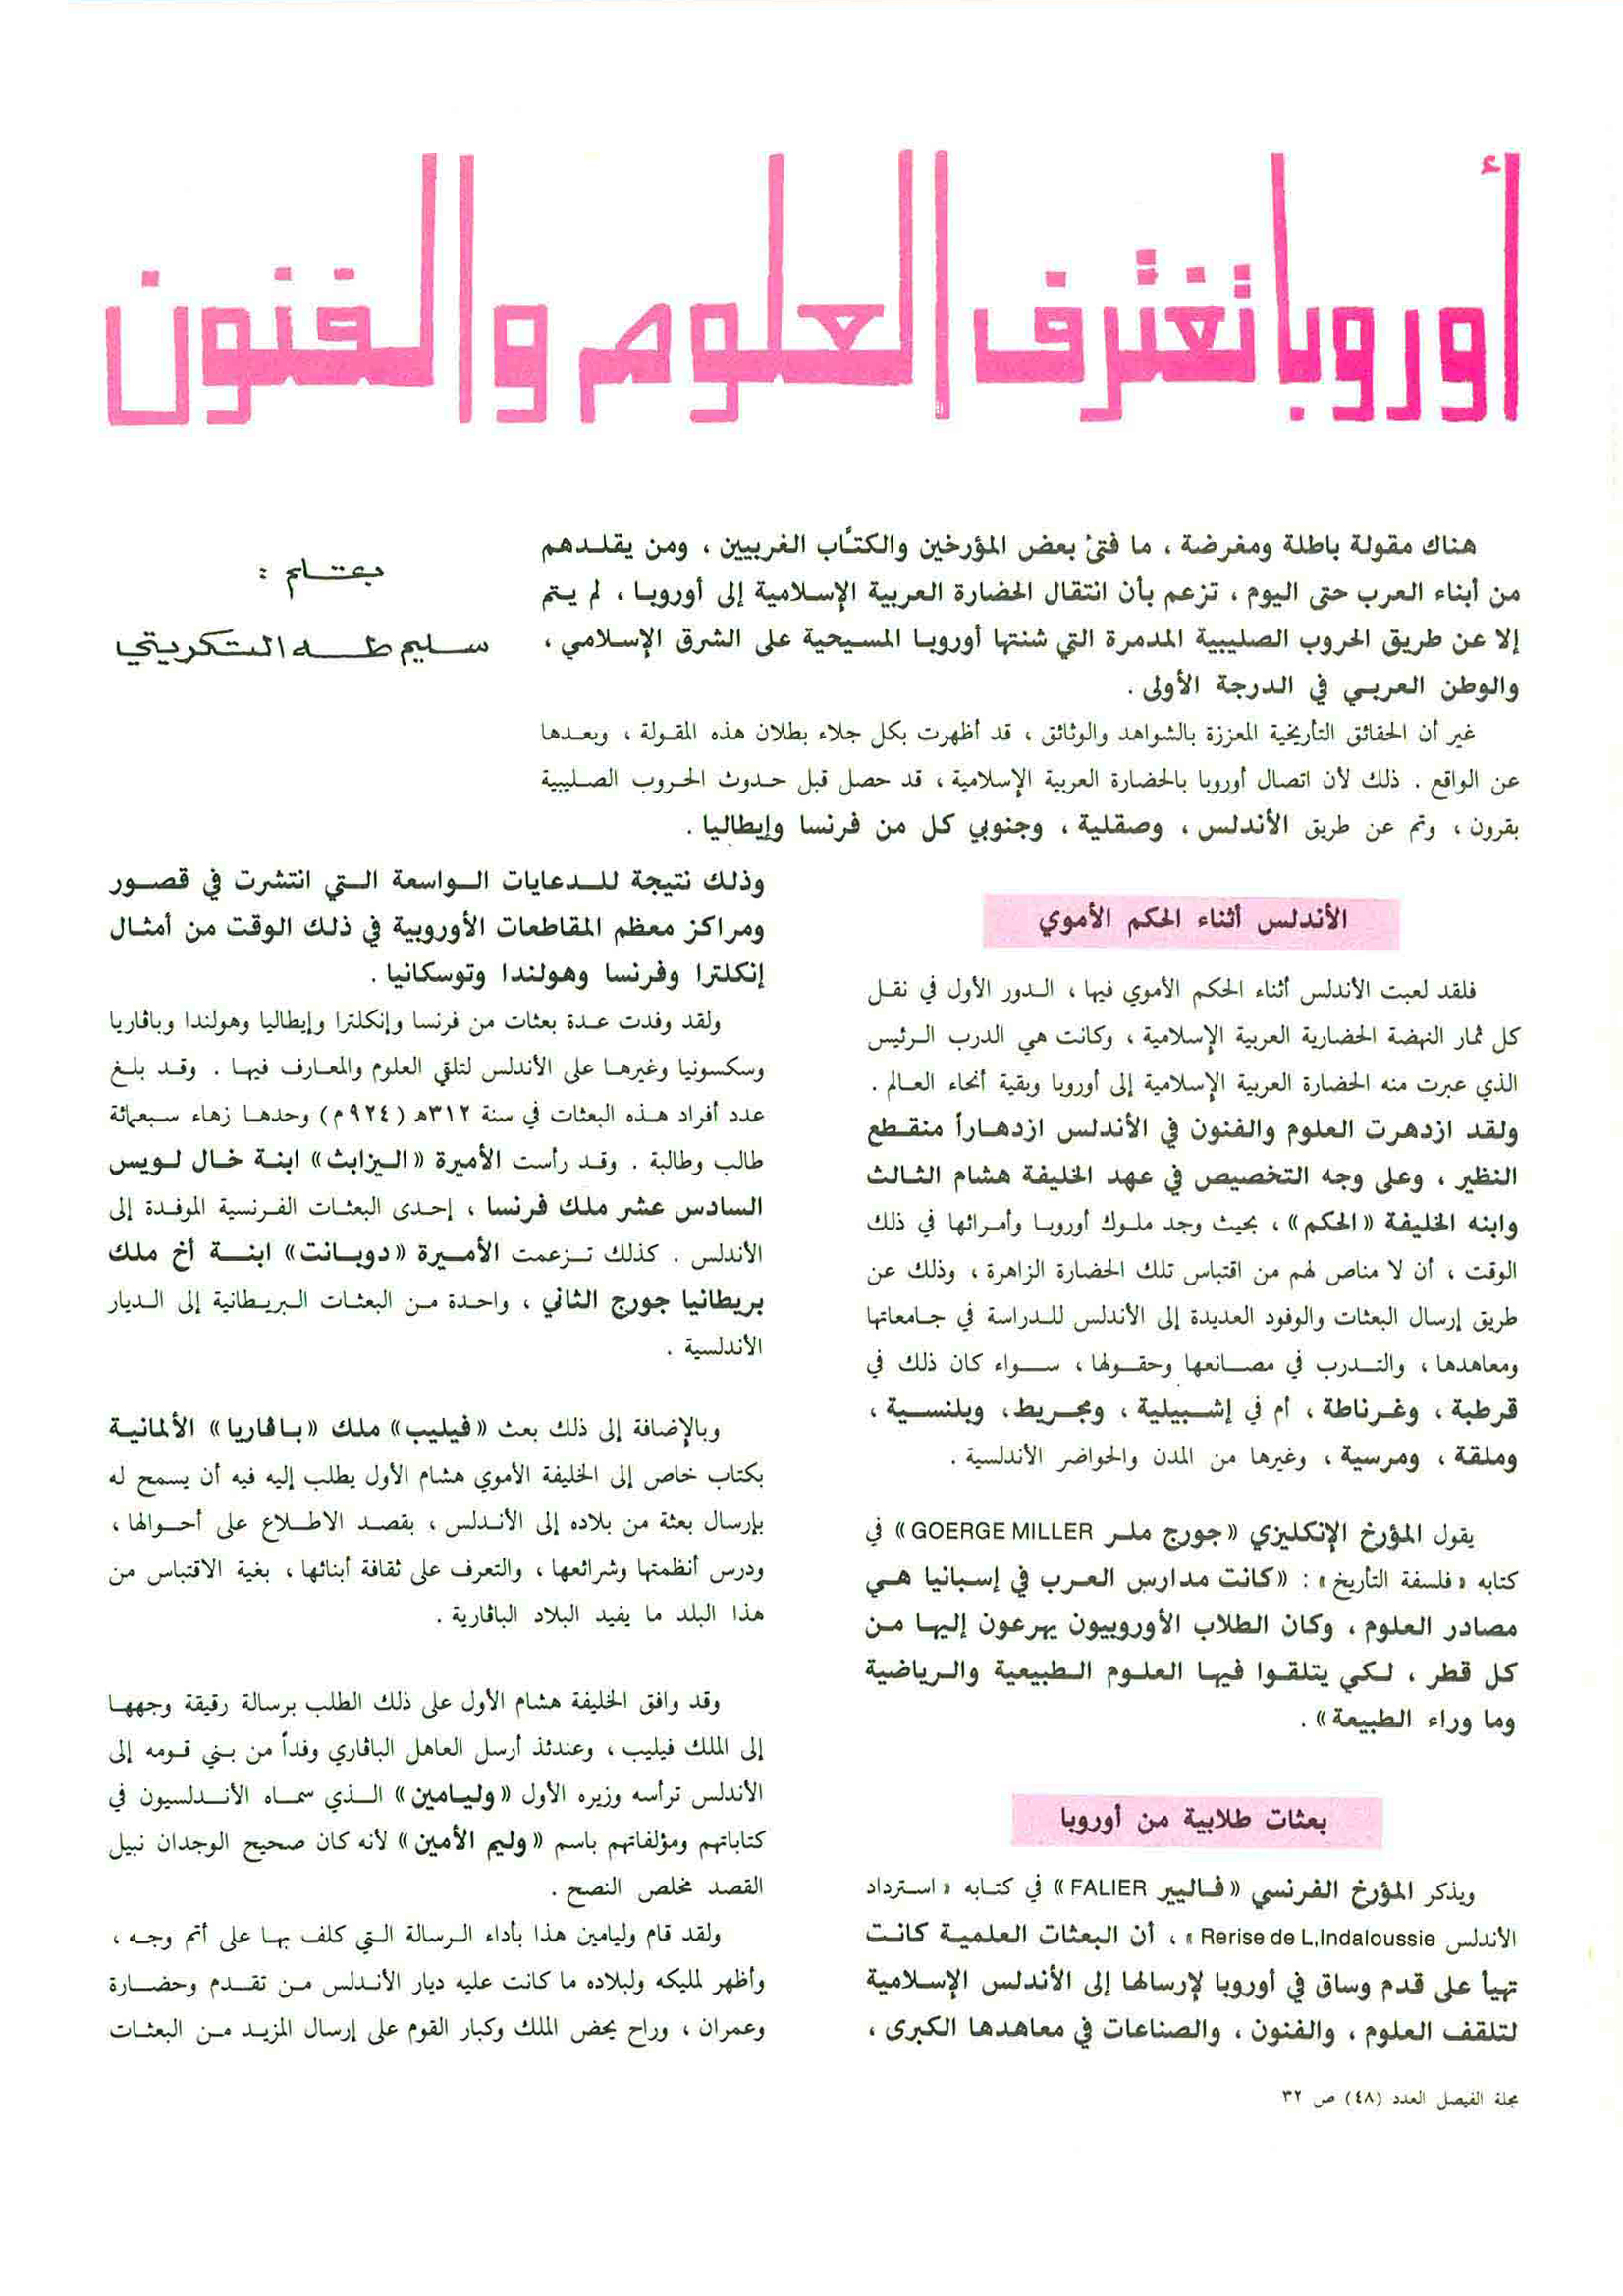 أوروبا تغترف العلوم والفنون
بقلم :
سليم طه التكريتي
هناك مقولة باطلة ومغرضة ، ما فتئ بعض المؤرخين والكتّاب الغربيين ، ومن يقلدهم
من أبناء العرب حتى اليوم ، تزعم بأن انتقال الحضارة العربية الإسلامية إلى أوروبا ، لم يتم
إلا عن طريق الحروب الصليبية المدمرة التي شنتها أوروبا المسيحية على الشرق الإسلامي ،
والوطن العربي في الدرجة الأولى .
غير أن الحقائق التأريخية المعززة بالشواهد والوثائق ، قد أظهرت بكل جلاء بطلان هذه المقولة ، وبعدها
عن الواقع . ذلك لأن اتصال أوروبا بالحضارة العربية الإسلامية ، قد حصل قبل حدوث الحروب الصليبية
بقرون ، وتم عن طريق الأندلس ، وصقلية ، وجنوبي كل من فرنسا وإيطاليا .
الأندلس أثناء الحكم الأموي
فلقد لعبت الأندلس أثناء الحكم الأموي فيها ، الدور الأول في نقل
كل ثمار النهضة الحضارية العربية الإسلامية ، وكانت هي الدرب الرئيس
الذي عبرت منه الحضارة العربية الإسلامية إلى أوروبا وبقية أنحاء العالم .
ولقد ازدهرت العلوم والفنون في الأندلس ازدهاراً منقطع
النظير ، وعلى وجه التخصيص في عهد الخليفة هشام الثالث
وابنه الخليفة «الحكم» ، بحيث وجد ملوك أوروبا وأمرائها في ذلك
الوقت ، أن لا مناص لهم من اقتباس تلك الحضارة الزاهرة ، وذلك عن
طريق إرسال البعثات والوفود العديدة إلى الأندلس للدراسة في جامعاتها
ومعاهدها ، والتدرب في مصانعها وحقولها ، سواء كان ذلك في
قرطبة ، وغرناطة ، أم في إشبيلية ، ومجريط ، وبلنسية ،
وملقة ، ومرسية ، وغيرها من المدن والحواضر الأندلسية .
يقول المؤرخ الإنكليزي «جورج ملر GOERGE MILLER» في
كتابه «فلسفة التأريخ» : «كانت مدارس العرب في إسبانيا هي
مصادر العلوم ، وكان الطلاب الأوروبيون يهرعون إليها من
كل قطر ، لكي يتلقوا فيها العلوم الطبيعية والرياضية
وما وراء الطبيعة» .
بعثات طلابية من أوروبا
ويذكر المؤرخ الفرنسي «فاليير FALIER» في كتابه «استرداد
الأندلس Rerise de L,Indaloussie» ، أن البعثات العلمية كانت
تهيأ على قدم وساق في أوروبا لإرسالها إلى الأندلس الإسلامية
لتلقف العلوم ، والفنون ، والصناعات في معاهدها الكبرى ،
وذلك نتيجة للدعايات الواسعة التي انتشرت في قصور
ومراكز معظم المقاطعات الأوروبية في ذلك الوقت من أمثال
إنكلترا وفرنسا وهولندا وتوسكانيا .
ولقد وفدت عدة بعثات من فرنسا وإنكلترا وإيطاليا وهولندا وباڤاريا
وسكسونيا وغيرها على الأندلس لتلقي العلوم والمعارف فيها . وقد بلغ
عدد أفراد هذه البعثات في سنة ٣١٢هـ (٩٢٤م) وحدها زهاء سبعمائة
طالب وطالبة . وقد رأست الأميرة «اليزابث» ابنة خال لويس
السادس عشر ملك فرنسا ، إحدى البعثات الفرنسية الموفدة إلى
الأندلس . كذلك تزعمت الأميرة «دوبانت» ابنة أخ ملك
بريطانيا جورج الثاني ، واحدة من البعثات البريطانية إلى الديار
الأندلسية .
وبالإضافة إلى ذلك بعث «فيليب» ملك «باڤاريا» الألمانية
بكتاب خاص إلى الخليفة الأموي هشام الأول يطلب إليه فيه أن يسمح له
بإرسال بعثة من بلاده إلى الأندلس ، بقصد الاطلاع على أحوالها ،
ودرس أنظمتها وشرائعها ، والتعرف على ثقافة أبنائها ، بغية الاقتباس من
هذا البلد ما يفيد البلاد الباڤارية .
وقد وافق الخليفة هشام الأول على ذلك الطلب برسالة رقيقة وجهها
إلى الملك فيليب ، وعندئذ أرسل العاهل الباڤاري وفداً من بني قومه إلى
الأندلس ترأسه وزيره الأول «وليامين» الذي سماه الأندلسيون في
كتاباتهم ومؤلفاتهم باسم «وليم الأمين» لأنه كان صحيح الوجدان نبيل
القصد مخلص النصح .
ولقد قام وليامين هذا بأداء الرسالة التي كلف بها على أتم وجه ،
وأظهر لمليكه ولبلاده ما كانت عليه ديار الأندلس من تقدم وحضارة
وعمران ، وراح يحض الملك وكبار القوم على إرسال المزيد من البعثات
مجلة الفيصل العدد (٤٨) ص ٣٢